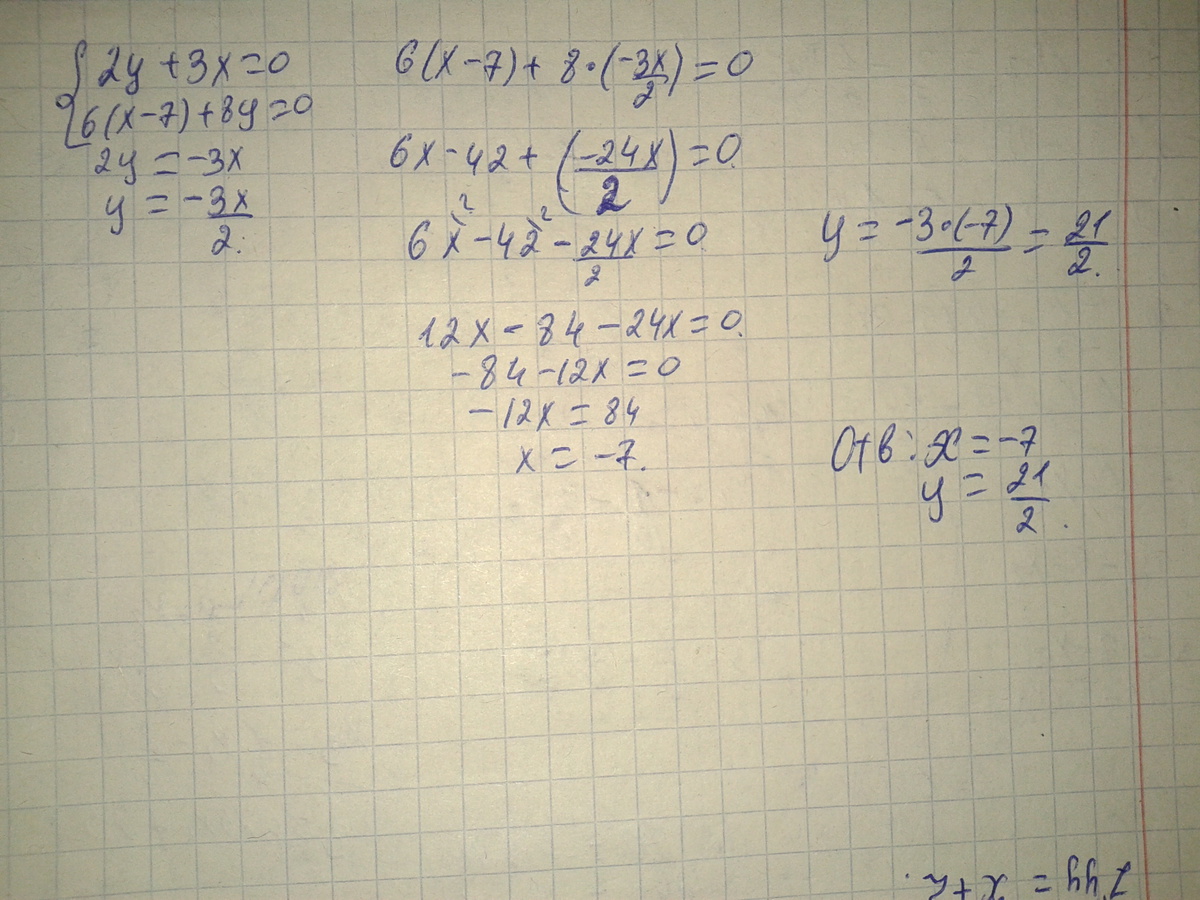 {2y + 3x = 0
6(x - 7) + 8y = 0
2y = -3x
y = -3x/2.
6(x - 7) + 8 · (-3x/2) = 0
6x - 42 + (-24x/2) = 0
6x\² - 42\² - 24x/2 = 0
12x - 84 - 24x = 0.
-84 - 12x = 0
-12x = 84
x = -7.
y = -3·(-7)/2 = 21/2.
Отв: x = -7
y = 21/2.